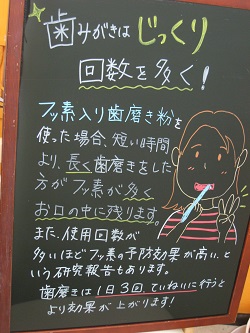 歯みがきは じっくり
回数を多く!
フッ素入り歯磨き粉を
使った場合、短い時間
より、長く歯磨きをした
方がフッ素が多く
お口の中に残ります。
また、使用回数が
多いほどフッ素の予防効果が高い、と
いう研究報告もあります。
歯磨きは1日3回、ていねいに行うと
より効果が上がります!